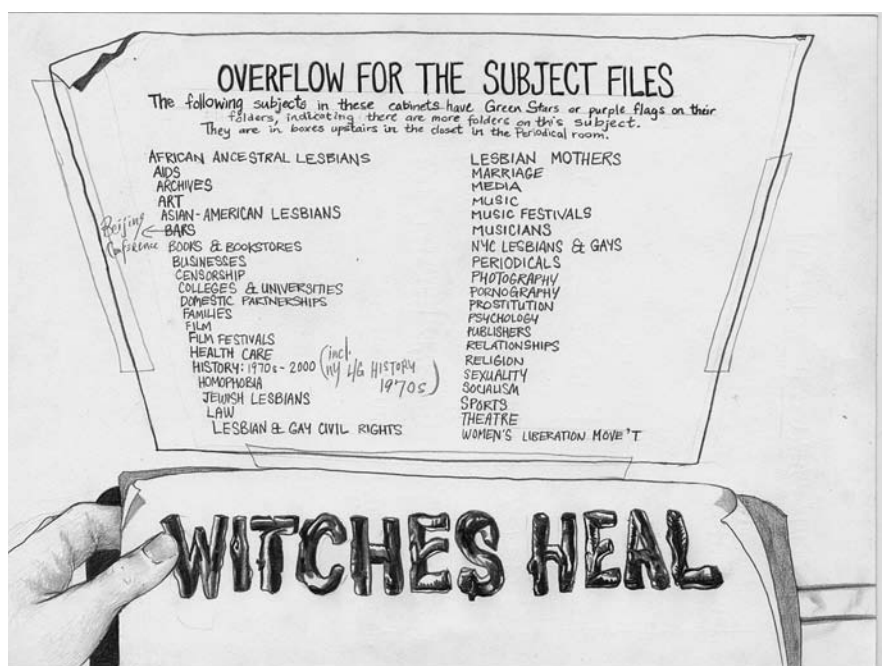 OVERFLOW FOR THE SUBJECT FILES
The following subjects in these cabinets have Green Stars or purple flags on their
folders, indicating there are more folders on this subject.
They are in boxes upstairs in the closet in the Periodical room.
AFRICAN ANCESTRAL LESBIANS
AIDS
ARCHIVES
ART
ASIAN-AMERICAN LESBIANS
BARS
Beijing
Conference
BOOKS & BOOKSTORES
BUSINESSES
CENSORSHIP
COLLEGES & UNIVERSITIES
DOMESTIC PARTNERSHIPS
FAMILIES
FILM
FILM FESTIVALS
HEALTH CARE
HISTORY: 1970s-2000 (incl.
ny L/G HISTORY
1970s)
HOMOPHOBIA
JEWISH LESBIANS
LAW
LESBIAN & GAY CIVIL RIGHTS
LESBIAN MOTHERS
MARRIAGE
MEDIA
MUSIC
MUSIC FESTIVALS
MUSICIANS
NYC LESBIANS & GAYS
PERIODICALS
PHOTOGRAPHY
PORNOGRAPHY
PROSTITUTION
PSYCHOLOGY
PUBLISHERS
RELATIONSHIPS
RELIGION
SEXUALITY
SOCIALISM
SPORTS
THEATRE
WOMEN'S LIBERATION MOVE'T
WITCHES HEAL